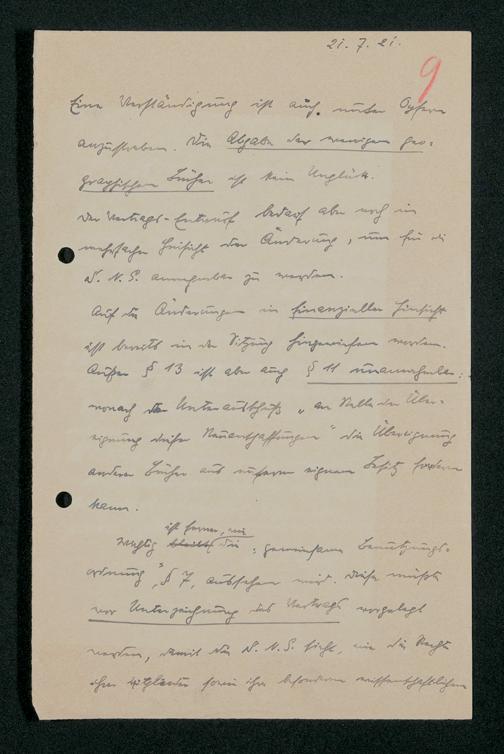 21. 7. 21.
9
Eine Verständigung ist auch unter Opfern
anzustreben. Die Abgabe der wenigen geo-
graphischen Bücher ist kein Unglück.
Der Vertrags-Entwurf bedarf aber noch in
mehrfacher Hinsicht der Änderung, um für die
D. N. G. annehmbar zu werden.
Auf die Änderungen in finanzieller Hinsicht
ist bereits in der Sitzung hingewiesen worden.
Außer § 13 ist aber auch § 11 unannehmbar:
wonach der Unterausschuß „an Stelle der Über-
eignung dieser Neuanschaffungen" die Übereignung
anderer Bücher aus unserem eigenen Besitz fordern
kann.
ist ferner, wie
Wichtig bleibt die „gemeinsame Benutzungs-
ordnung", § 7, aussehen wird. Diese müßte
vor Unterzeichnung des Vertrags vorgelegt
werden, damit die D. N. G. sieht, wie die Rechte
ihrer Mitglieder sowie ihre besonderen wissenschaftlichen